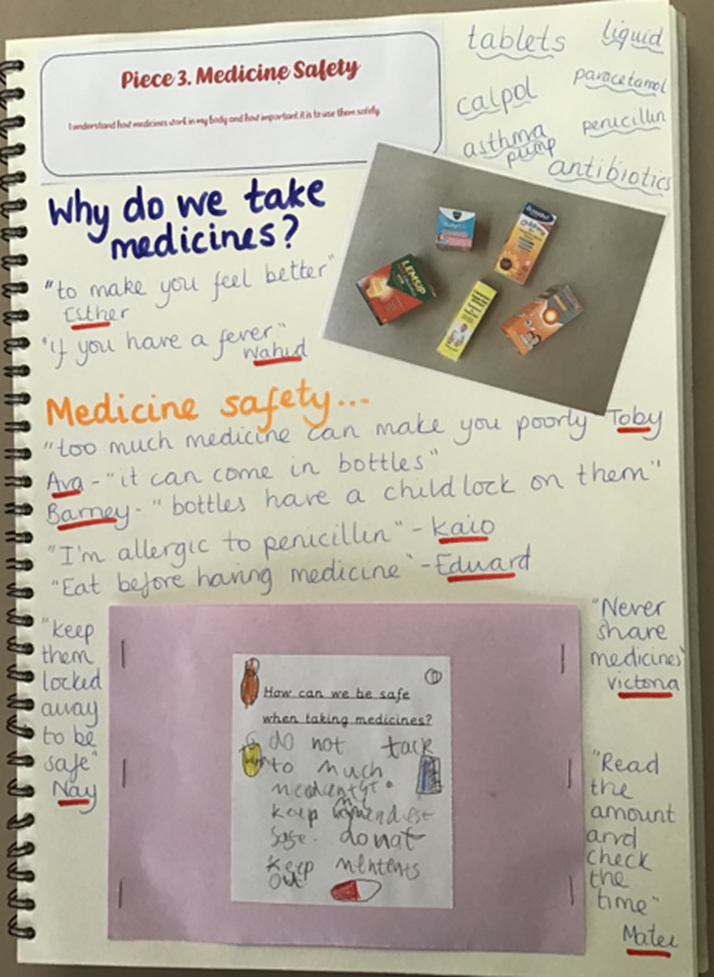 Piece 3. Medicine Safety
I understand how medicines work in my body and how important it is to use them safely.
tablets liquid
calpol paracetamol
asthma pump penicillin
antibiotics
Why do we take
medicines?
"to make you feel better"
Esther
"if you have a fever"
Wahid
LEMSIP
Medicine safety...
"too much medicine can make you poorly Toby
Ava - "it can come in bottles"
Barney - "bottles have a child lock on them"
"I'm allergic to penicillin" - Kaio
"Eat before having medicine" - Edward
"keep
them
locked
away
to be
safe"
Nay
How can we be safe
when taking medicines?
do not tack
to much
keep
safe. do nat
keep
out
"Never
share
medicines"
Victoria
"Read
the
amount
and
check
the
time"
Mateu